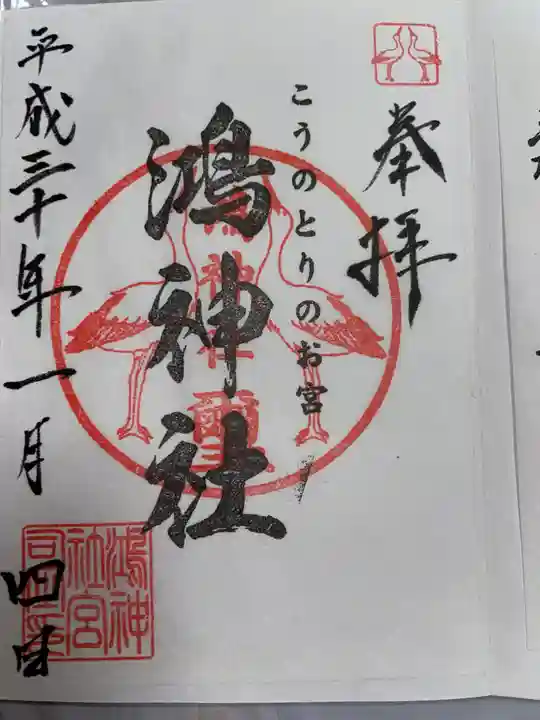 奉拝
こうのとりのお宮
鴻神社
平成三十年一月四日
鴻神社宮司之印